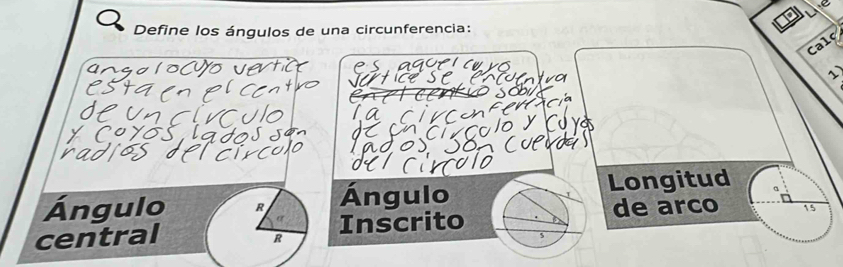 Define los ángulos de una circunferencia:
angolo cuyo vertice
esta en el centro
de un circulo
y coyos lados son
radios del circolo
es aquel cuyo
vertice se encuentra
en el centro sobre
la circonferencia
de un circolo y cuyos
lados son cuerdas
del circolo
Ángulo
central
R
α
R
Ángulo
Inscrito
5
Longitud
de arco
a
15
Calc
1)